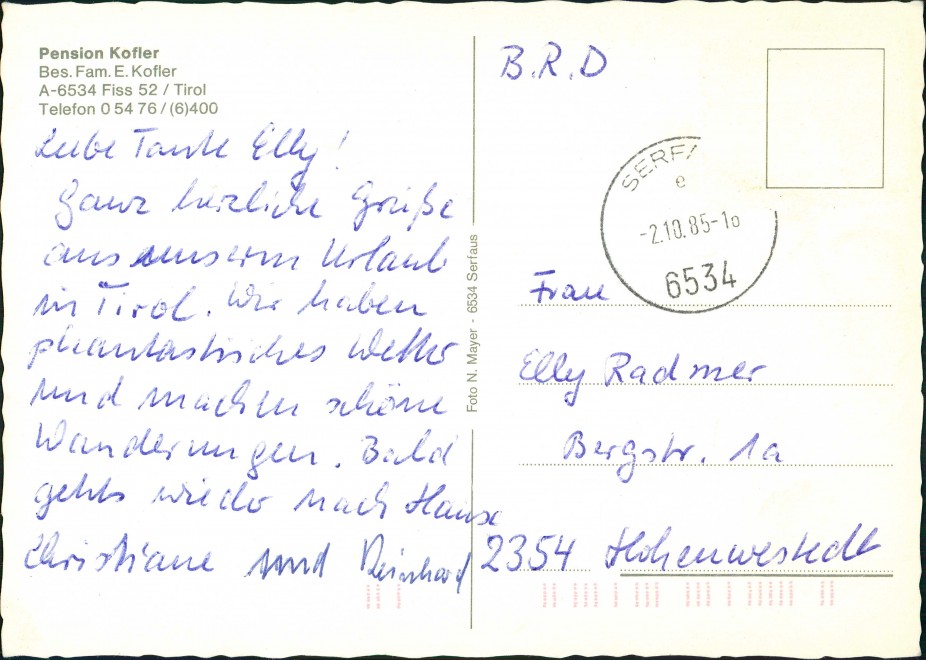 Pension Kofler
Bes. Fam. E. Kofler
A-6534 Fiss 52 / Tirol
Telefon 0 54 76 / (6)400
Liebe Tante Elly!
Ganz herzliche Grüße
aus unserm Urlaub
in Tirol. Wir haben
phantastisches Wetter
und machen schöne
Wanderungen. Bald
gehts wieder nach Hause
Christiane und Reinhard
Foto N. Mayer · 6534 Serfaus
B.R.D
SERFA
e
-2.10.85-10
6534
Frau
Elly Radmer
Bergstr. 1a
2354 Hohenwestedt